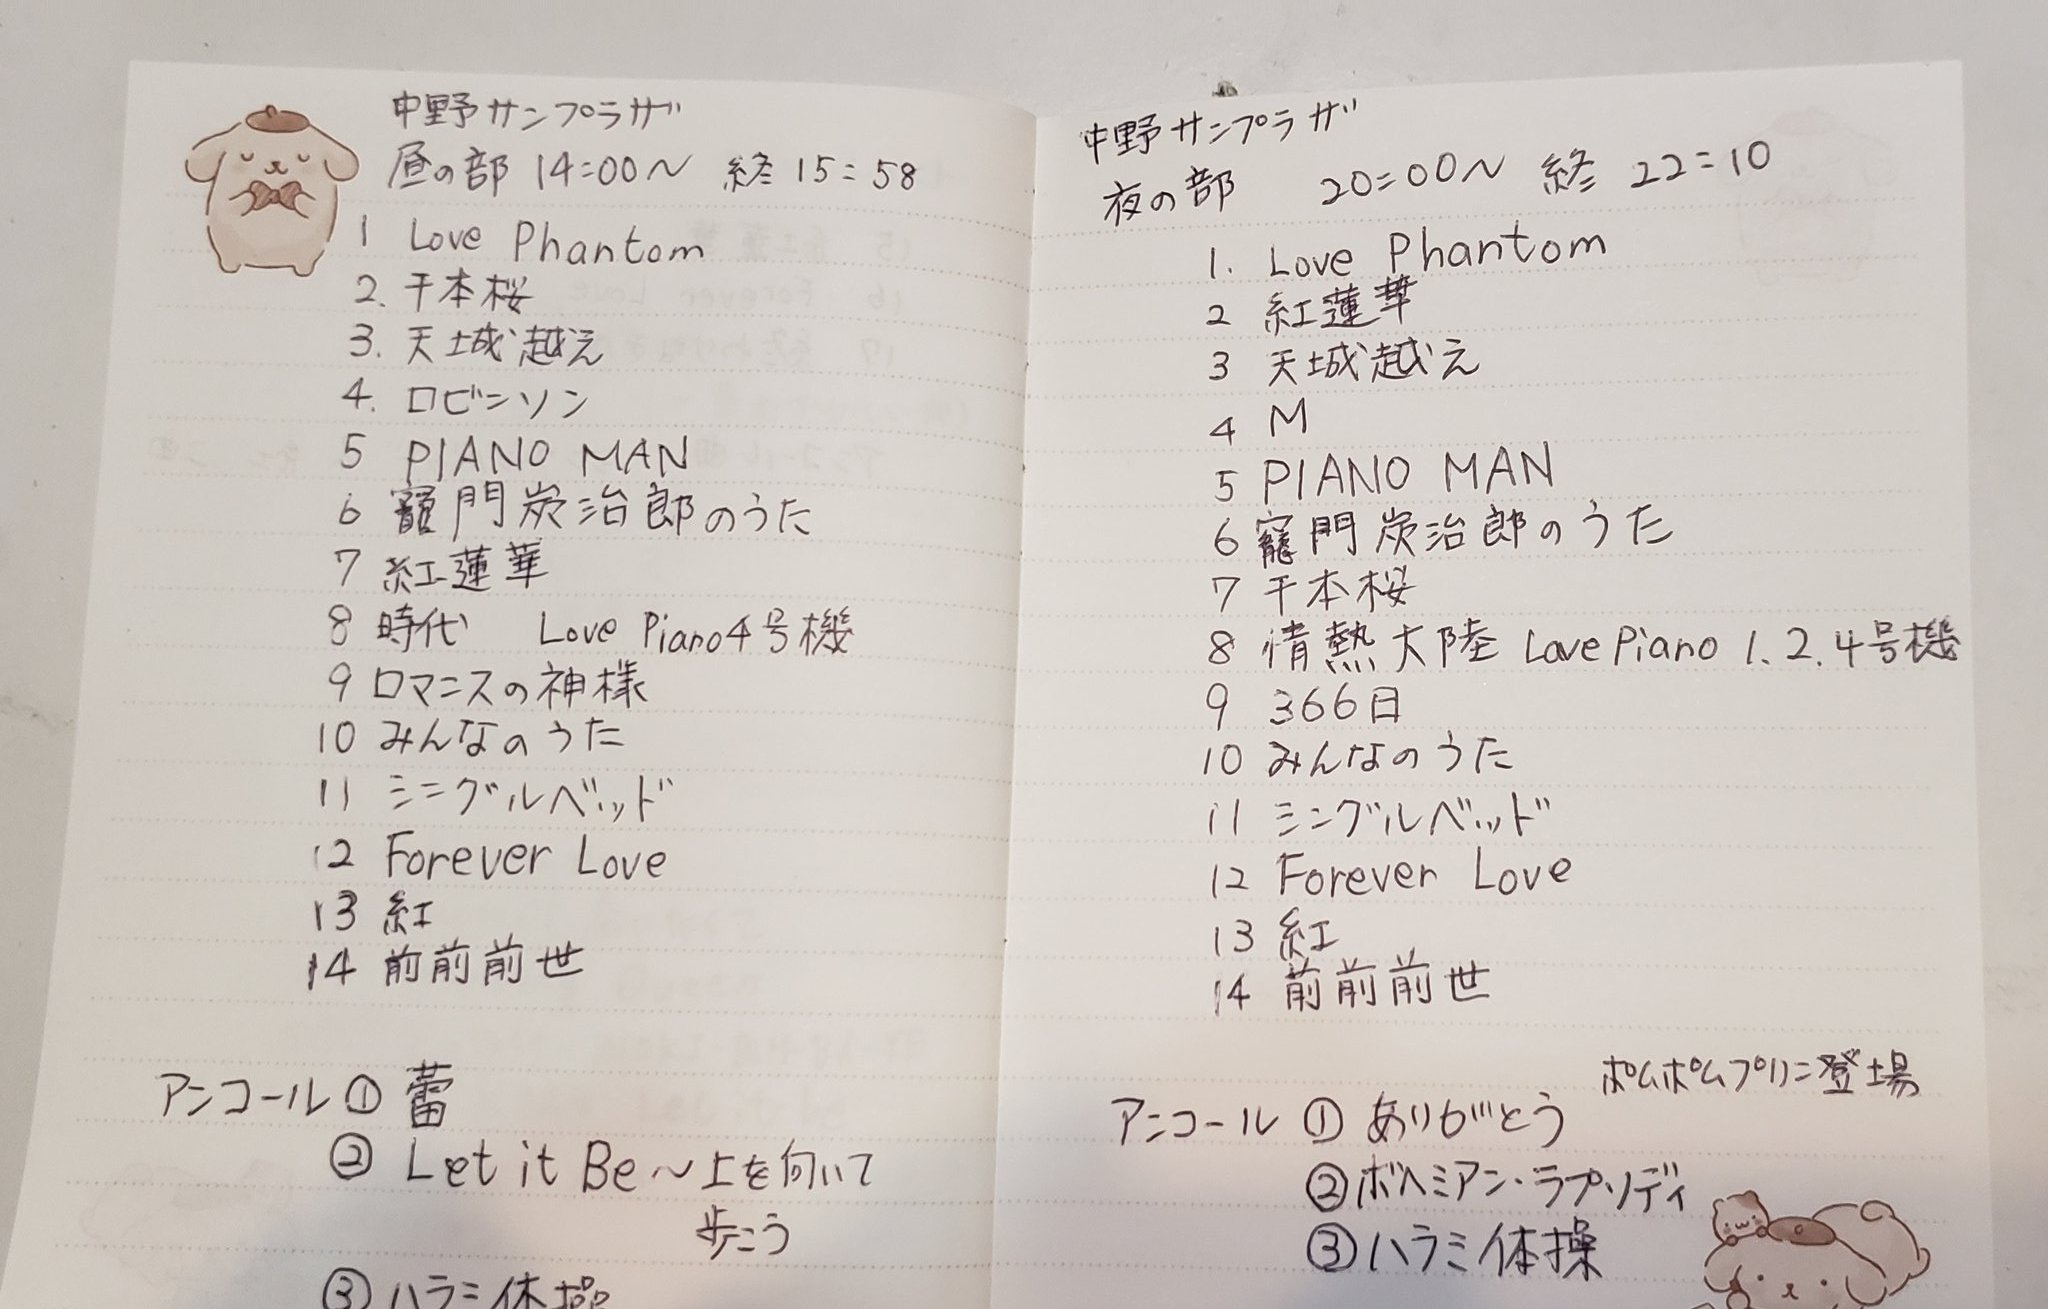 中野サンプラザ
昼の部 14:00〜 終 15:58
1 Love Phantom
2. 千本桜
3. 天城越え
4. ロビンソン
5 PIANO MAN
6 竈門炭治郎のうた
7 紅蓮華
8 時代 Love Piano4号機
9 ロマンスの神様
10 みんなのうた
11 シングルベッド
12 Forever Love
13 紅
14 前前前世
アンコール ① 蕾
② Let it Be 〜上を向いて
歩こう
③ ハラミ体操
中野サンプラザ
夜の部 20:00〜 終 22:10
1. Love Phantom
2 紅蓮華
3 天城越え
4 M
5 PIANO MAN
6 竈門炭治郎のうた
7 千本桜
8 情熱大陸 Love Piano 1.2.4号機
9 366日
10 みんなのうた
11 シングルベッド
12 Forever Love
13 紅
14 前前前世
ポムポムプリン登場
アンコール ① ありがとう
② ボヘミアン・ラプソディ
③ ハラミ体操